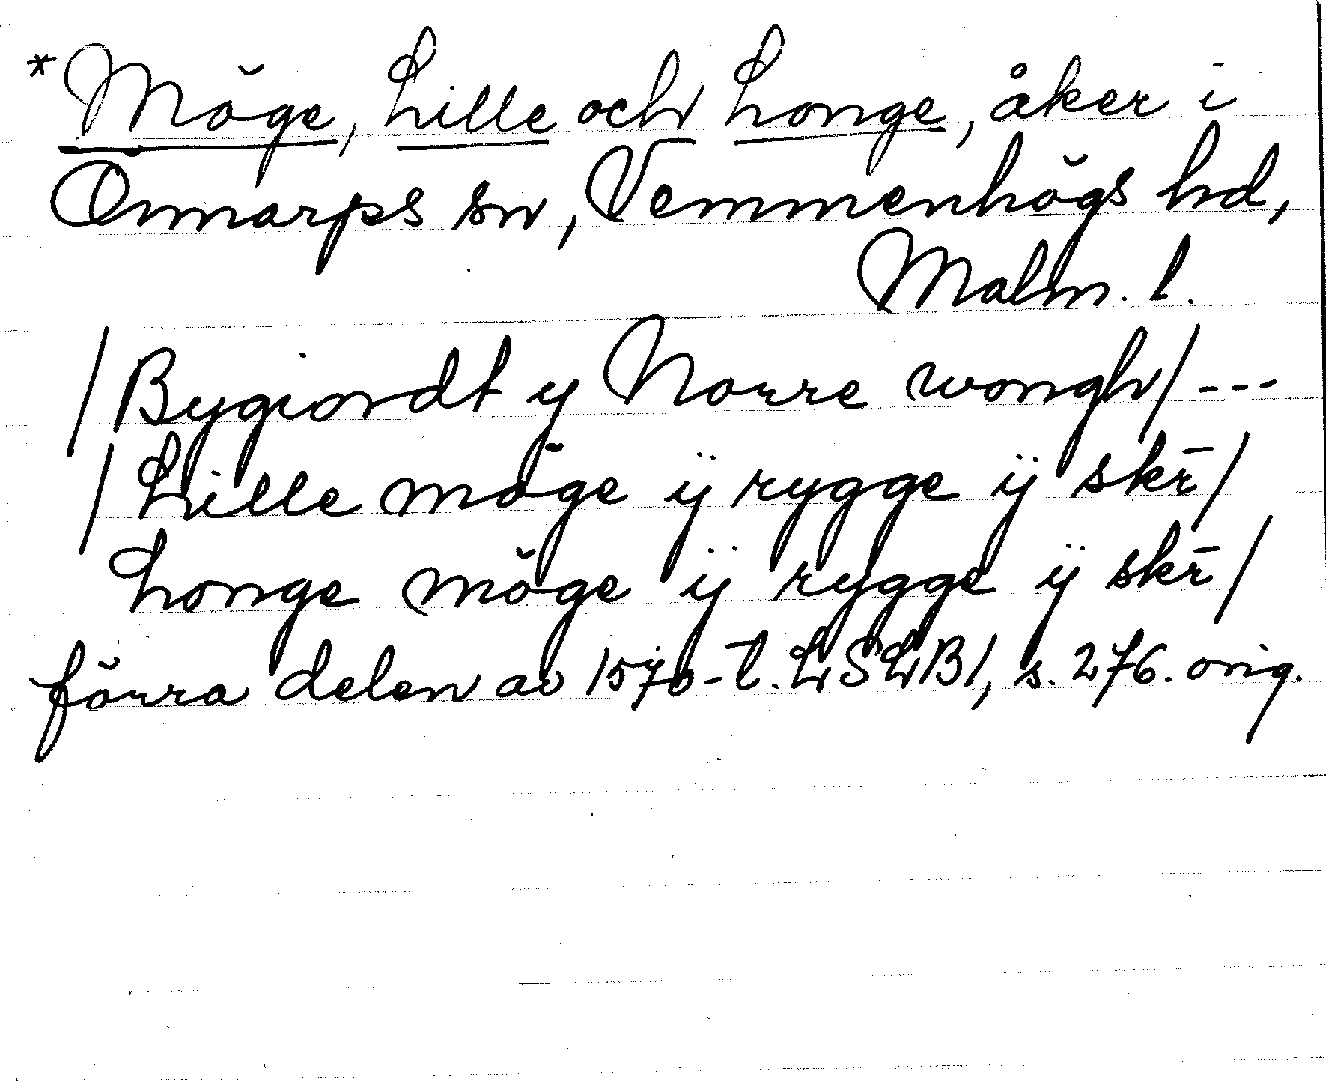 *Möge, Lille och Longe, åker i
Önnarps sn, Vemmenhögs hd,
Malm. l.
/Bygiordt y Norre wongh/---
/Lille möge ÿ rygge ÿ skr̄/
Longe möge ÿ rygge ÿ skr̄/
förra delen av 1570-t. LSLB1, s. 276. orig.